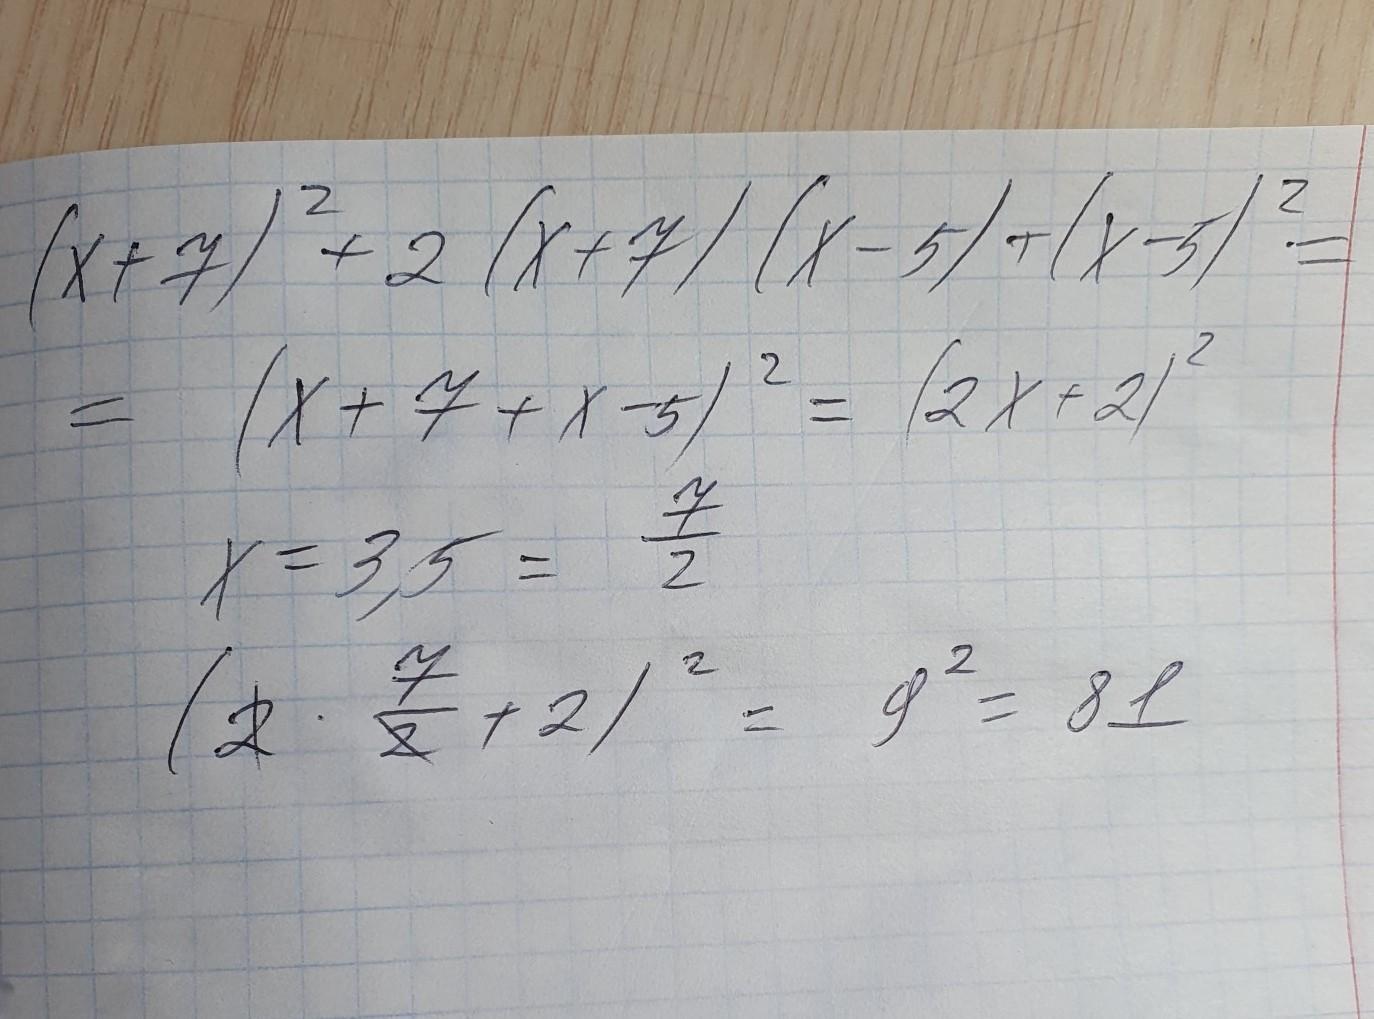 (x+7)² + 2(x+7)(x-5)+(x-5)² =
= (x+7+x-5)² = (2x+2)²
x = 3,5 = 7/2
(2 · 7/2 + 2)² = 9² = 81